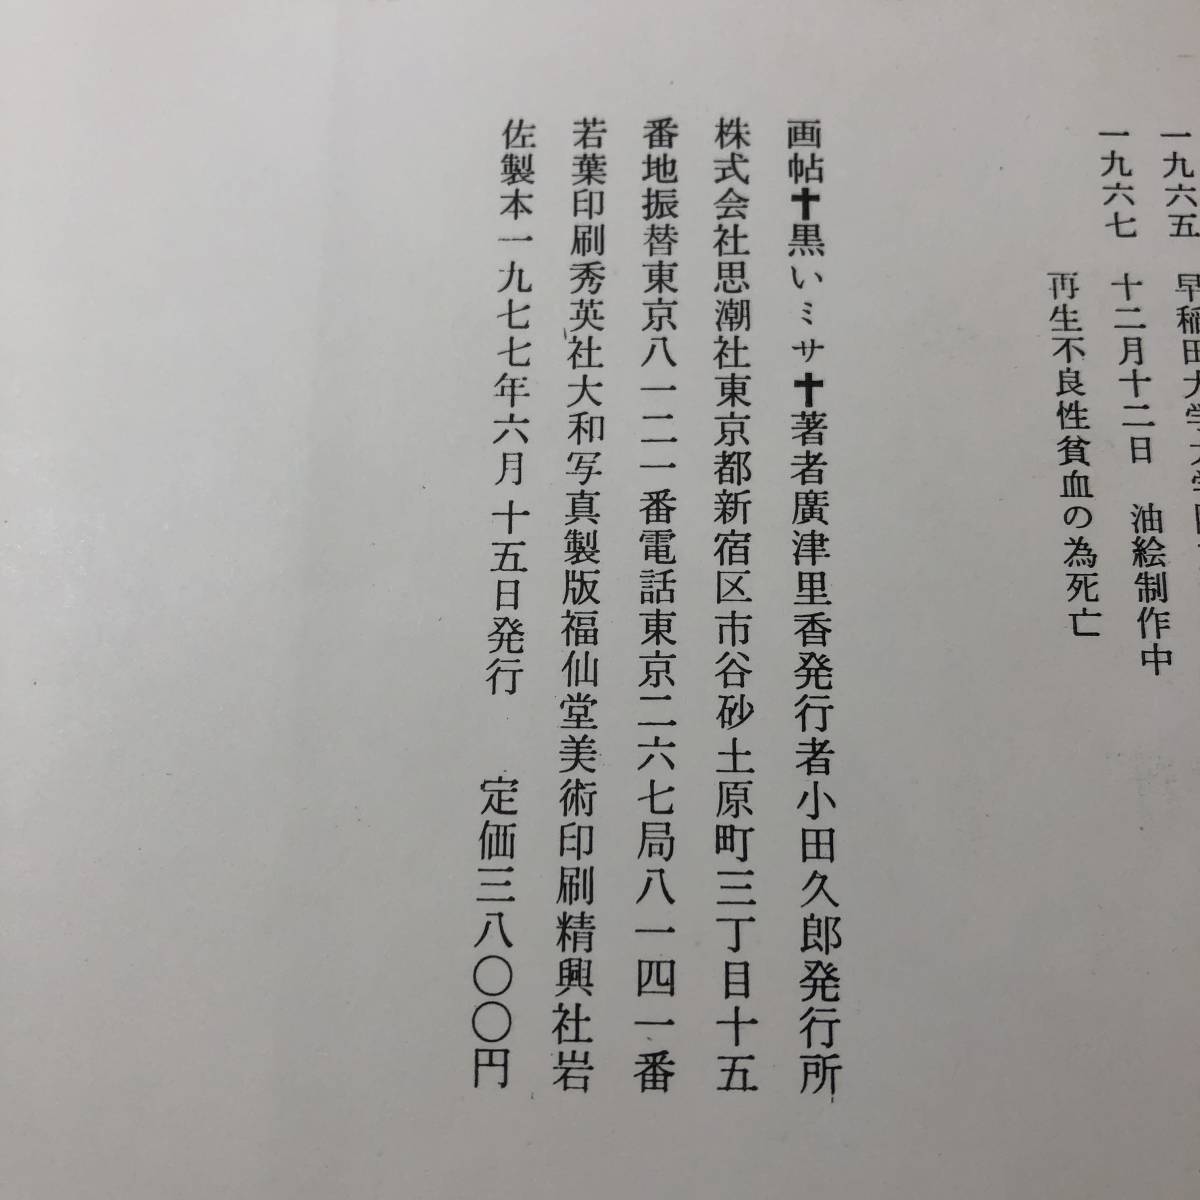 一九六五 早稲田大学大学
一九六七 十二月十二日 油絵制作中
再生不良性貧血の為死亡
画帖✝黒いミサ✝著者廣津里香発行者小田久郎発行所
株式会社思潮社東京都新宿区市谷砂土原町三丁目十五
番地振替東京八一二一番電話東京二六七局八一四一番
若葉印刷秀英社大和写真製版福仙堂美術印刷精興社岩
佐製本一九七七年六月十五日発行 定価三八〇〇円